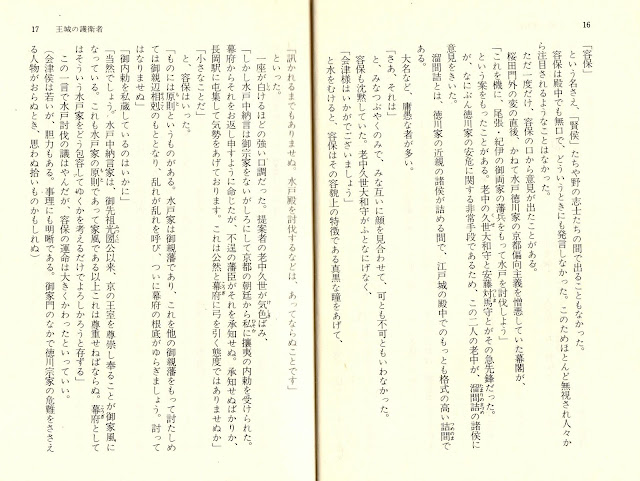 16
「容保」
という名さえ、「賢侯」たちや野の志士たちの間で出ることもなかった。
容保は殿中でも無口で、どういうときにも発言しなかった。このためほとんど無視され人々か
ら注目されるようなことはなかった。
ただ一度だけ、容保の口から意見が出たことがある。
桜田門外の変の直後、かねて水戸徳川家の京都偏向主義を憎悪していた幕閣が、
「これを機に、尾張・紀伊の御両家の藩兵をもって水戸を討伐しよう」
という案をもったことがある。老中の久世大和守と安藤対馬守とがその急先鋒だった。
が、なにぶん徳川家の安危に関する非常手段であるため、この二人の老中が、溜間詰の諸侯に
意見をきいた。
溜間詰とは、徳川家の近親の諸侯が詰める間で、江戸城の殿中でのもっとも格式の高い詰間で
ある。
大名など、庸愚な者が多い。
「さあ、それは」
と、みなつぶやくのみで、みな互いに顔を見合わせて、可とも不可ともいわなかった。
容保も沈黙していた。老中久世大和守がふとなにげなく、
「会津様はいかがでございましょう」
と水をむけると、容保はその容貌上の特徴である真黒な瞳をあげて、
17 王城の護衛者
「訊かれるまでもありませぬ。水戸殿を討伐するなどは、あってならぬことです」
といった。
一座が白けるほどの強い口調だった。提案者の老中久世が気色ばみ、
「しかし水戸中納言は御宗家をないがしろにして京都の朝廷から私に攘夷の内勅を受けられた。
幕府からそれをお返し申すように命じたが、不逞の藩臣がそれを承知せぬ。承知せぬばかりか、
長岡駅に屯集して気勢をあげております。これは公然と幕府に弓を引く態度ではありませぬか」
「小さなことだ」
と、容保はいった。
「ものには原則というものがある。水戸家は御親藩であり、これを他の御親藩をもって討たしめ
ては御親辺相剋のもととなり、乱れが乱れを呼び、ついに幕府の根底がゆらぎましょう。討って
はなりませぬ」
「御内勅を私蔵しているのはいかに」
「当然でしょう。水戸中納言家は、御先祖光圀公以来、京の王室を尊崇し奉ることが御家風に
なっている。これも水戸家の原則であって家風である以上これは尊重せねばならぬ。幕府として
はそういう水戸家をどう包容してゆくかを考えるだけでよろしかろうと存ずる」
この一言で水戸討伐の議はやんだが、容保の運命は大きくかわったといっていい。
(会津侯は若いが、胆力もある。事理にも明晰である。御家門のなかで徳川宗家の危難をささえ
る人物がおらぬとき、思わぬ拾いものかもしれぬ)